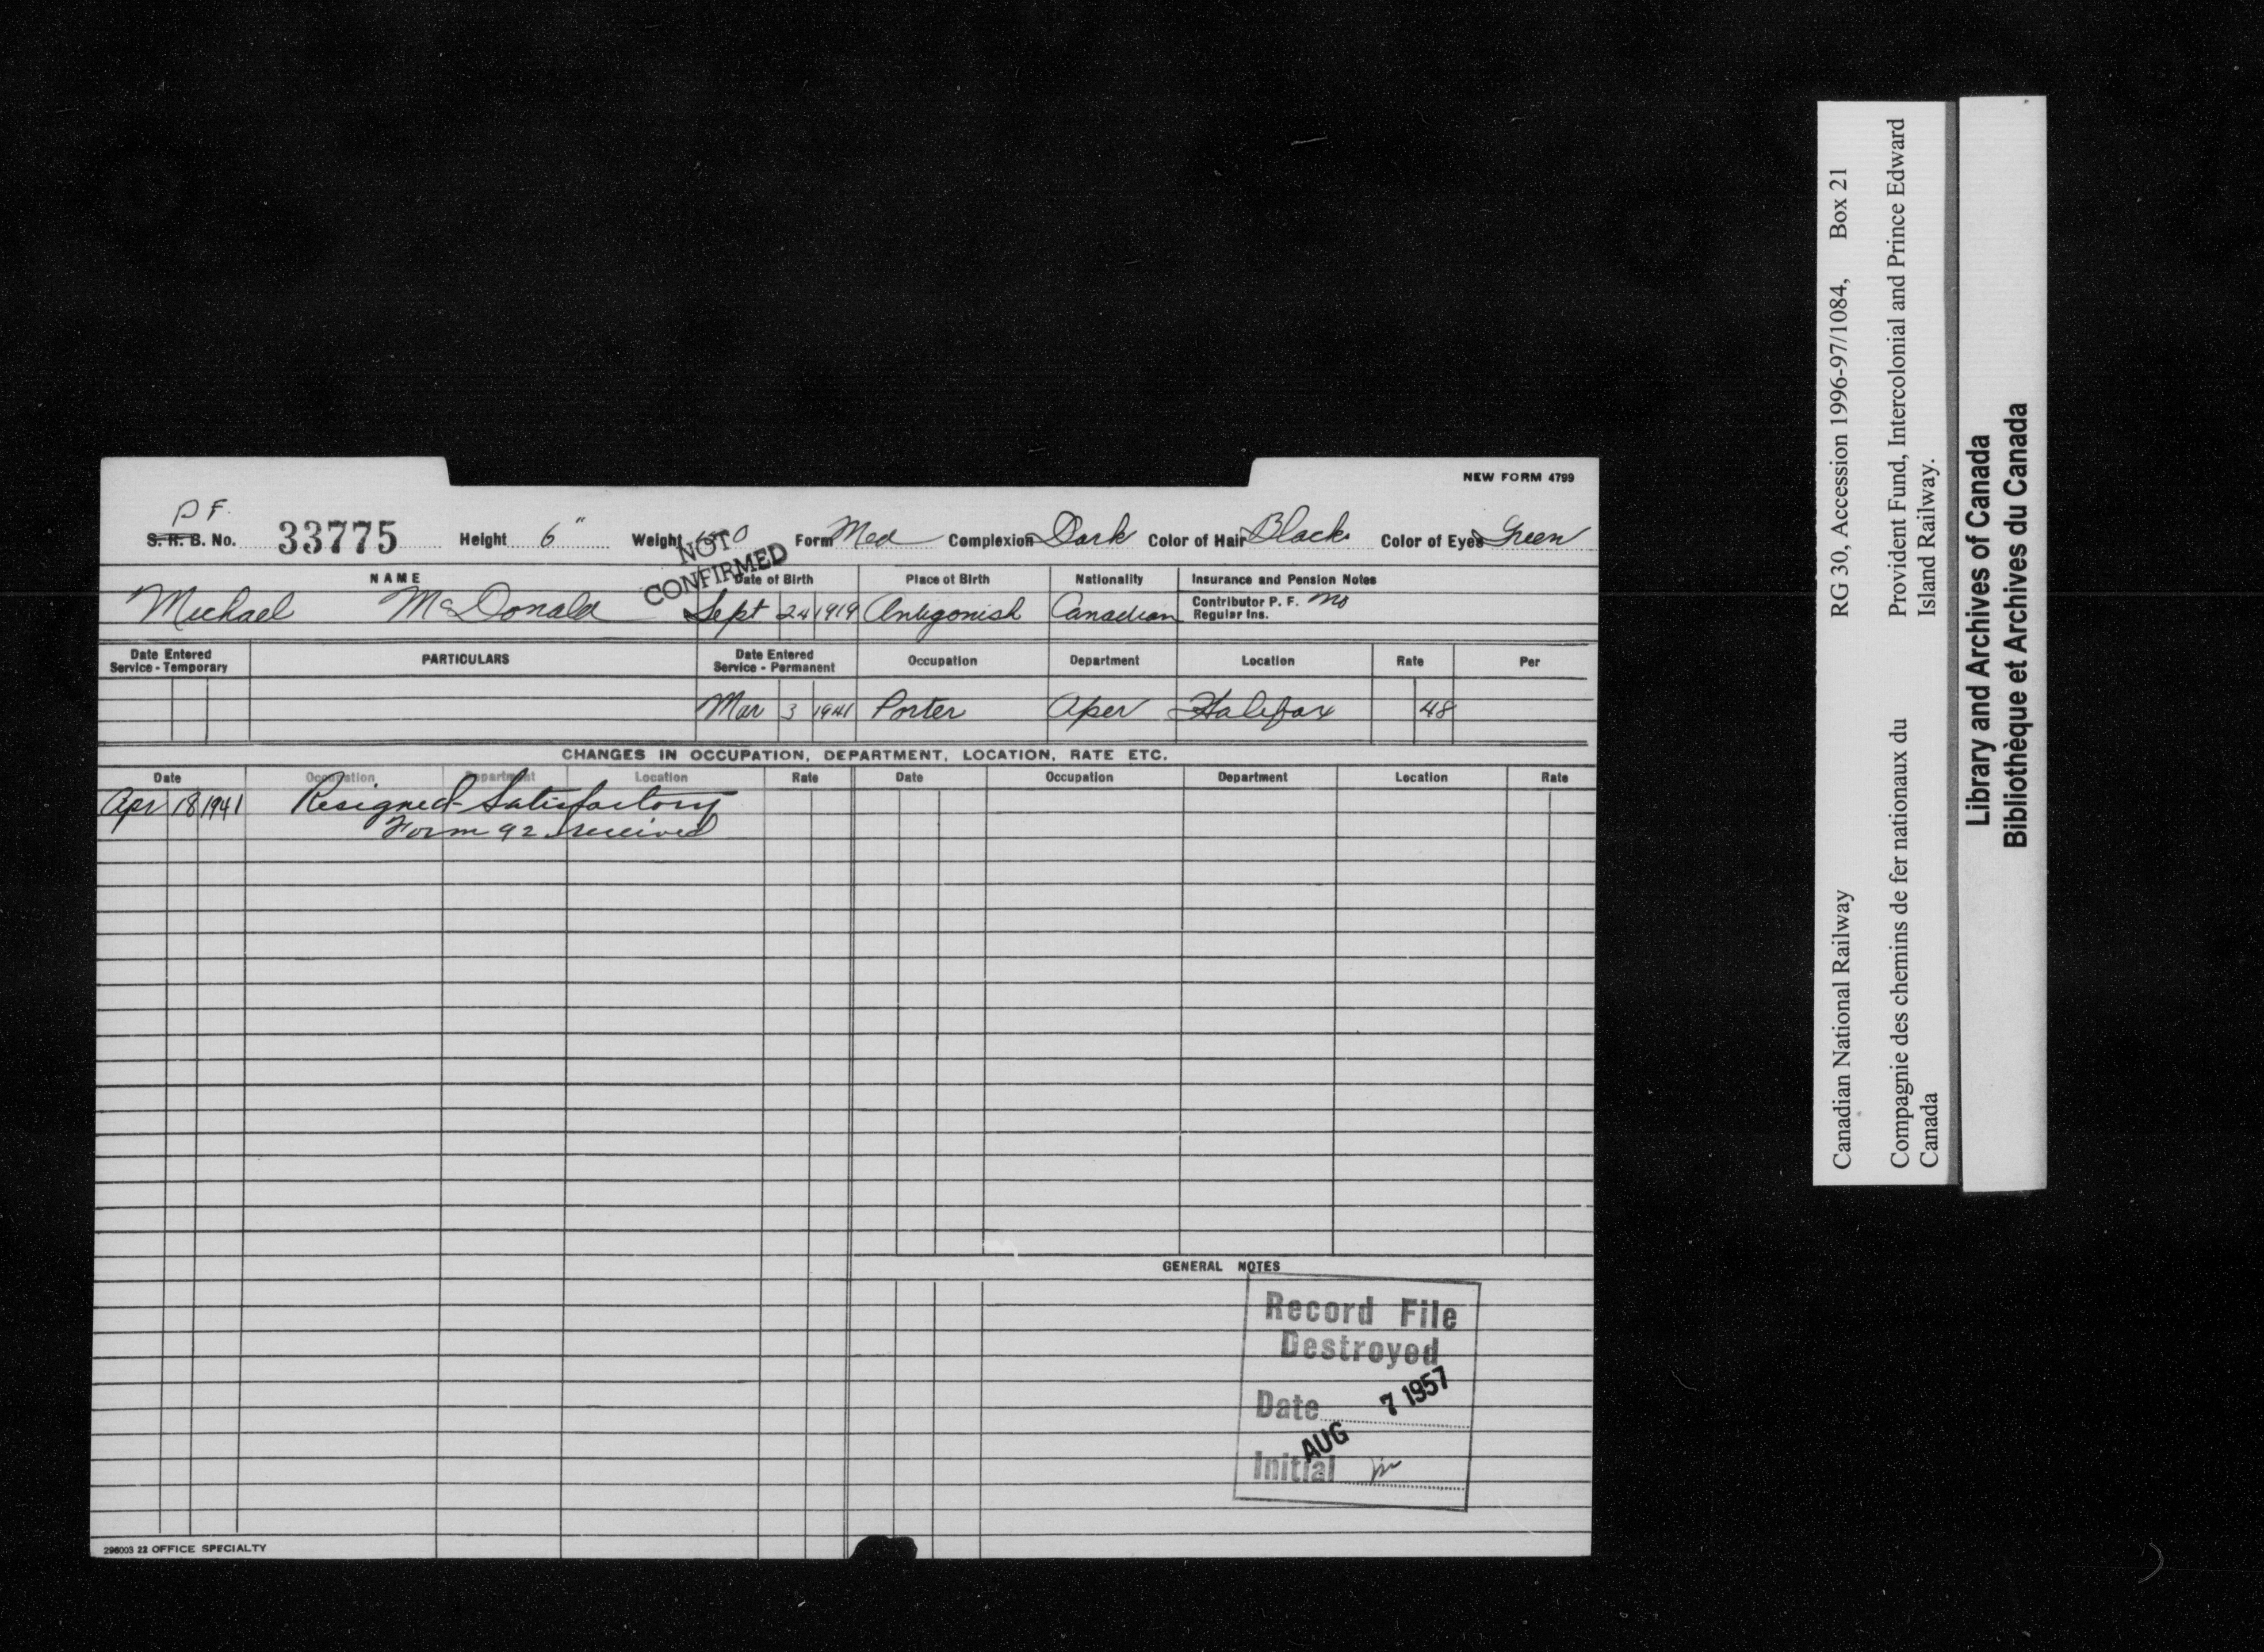 NEW FORM 4799
P F.
S. R. B. No. 33775 Height 6" Weight Form Med Complexion Dark Color of Hair Black Color of Eyes Green
NOT CONFIRMED
NAME Date of Birth Place of Birth Nationality Insurance and Pension Notes
Michael McDonald Sept 24 1919 Antigonish Canadian Contributor P. F.
Regular Ins.
Date Entered Service - Temporary PARTICULARS Date Entered Service - Permanent Occupation Department Location Rate Per
Mar 3 1941 Porter Oper Halifax 48
CHANGES IN OCCUPATION, DEPARTMENT, LOCATION, RATE ETC.
Date Occupation Department Location Rate Date Occupation Department Location Rate
Apr 18 1941 Resigned - Satisfactory
Form 92 received
GENERAL NOTES
Record File
Destroyed
Date AUG 7 1957
Initial
296003 22 OFFICE SPECIALTY
Canadian National Railway RG 30, Accession 1996-97/1084, Box 21
Compagnie des chemins de fer nationaux du Canada
Provident Fund, Intercolonial and Prince Edward Island Railway.
Library and Archives of Canada
Bibliothèque et Archives du Canada